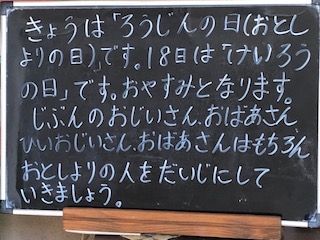 きょうは「ろうじんの日(おとし
よりの日)」です。18日は「けいろう
の日」です。おやすみとなります。
じぶんのおじいさん、おばあさん、
ひいおじいさん、おばあさんはもちろん
おとしよりの人をだいじにして
いきましょう。